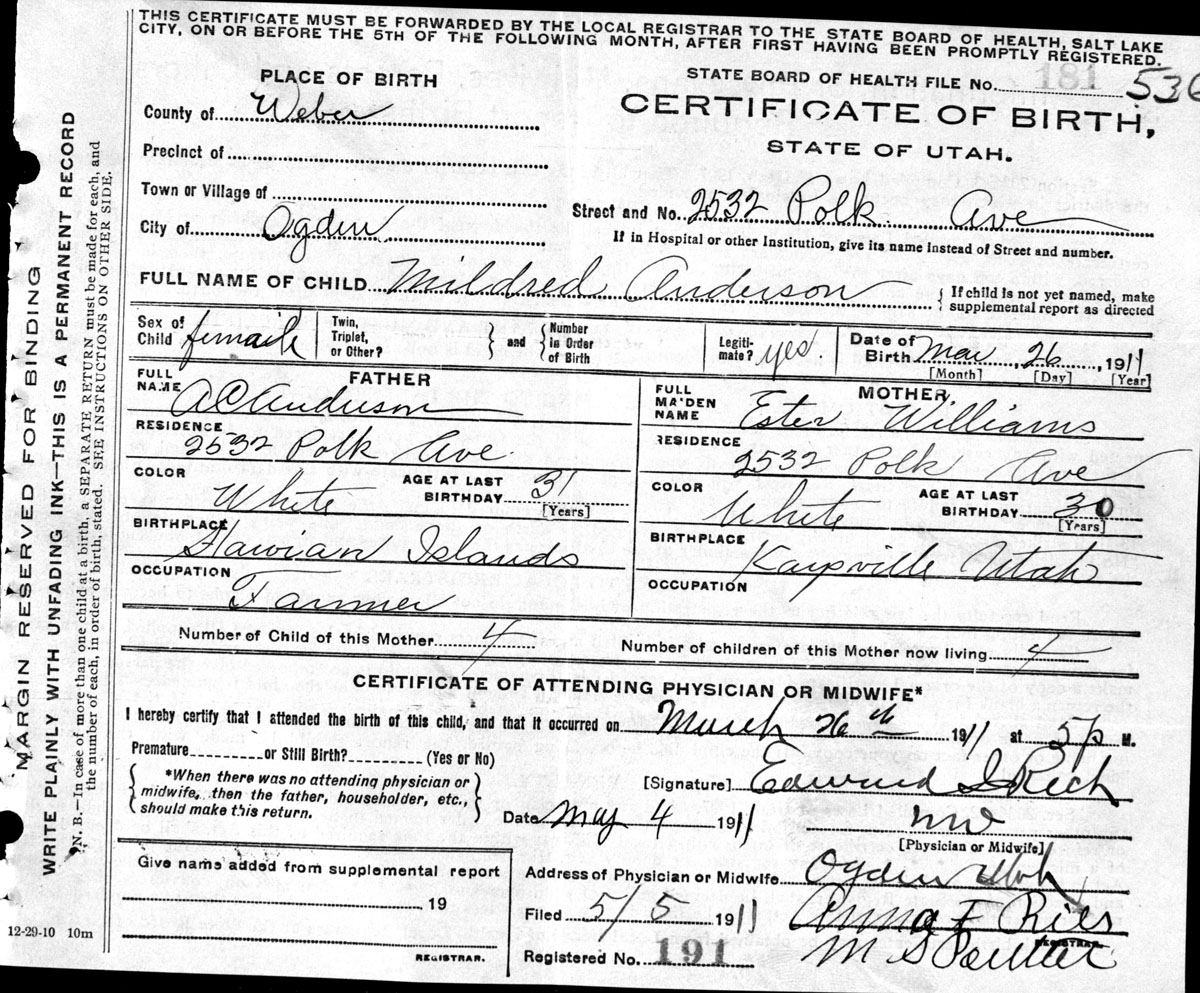 THIS CERTIFICATE MUST BE FORWARDED BY THE LOCAL REGISTRAR TO THE STATE BOARD OF HEALTH, SALT LAKE
CITY, ON OR BEFORE THE 5TH OF THE FOLLOWING MONTH, AFTER FIRST HAVING BEEN PROMPTLY REGISTERED.
PLACE OF BIRTH
STATE BOARD OF HEALTH FILE No. 181 536
County of Weber
CERTIFICATE OF BIRTH,
STATE OF UTAH.
Precinct of
Town or Village of
Street and No. 2532 Polk Ave
City of Ogden
If in Hospital or other Institution, give its name instead of Street and number.
FULL NAME OF CHILD Mildred Anderson
If child is not yet named, make
supplemental report as directed
Sex of Child female
Twin, Triplet, or Other?
and
Number in Order of Birth
Legiti-mate? yes.
Date of Birth Mar, 26, 1911
[Month] [Day] [Year]
FATHER
FULL NAME AC Anderson
RESIDENCE
2532 Polk Ave.
COLOR White AGE AT LAST BIRTHDAY 31
[Years]
BIRTHPLACE
Hawian Islands
OCCUPATION
Farmer
MOTHER
FULL MAIDEN NAME Ester Williams
RESIDENCE
2532 Polk Ave
COLOR White AGE AT LAST BIRTHDAY 30
[Years]
BIRTHPLACE
Kaysville Utah
OCCUPATION
Number of Child of this Mother 4
Number of children of this Mother now living 4
CERTIFICATE OF ATTENDING PHYSICIAN OR MIDWIFE*
I hereby certify that I attended the birth of this child, and that it occurred on March 26th 1911 at 5 P M.
Premature or Still Birth? (Yes or No)
*When there was no attending physician or
midwife, then the father, householder, etc.,
should make this return.
[Signature] Edward I Rich
Date May 4 1911 MD
[Physician or Midwife]
Give name added from supplemental report
, 19
REGISTRAR.
Address of Physician or Midwife Ogden Utah
Filed 5/5 1911 Anna F Ries
REGISTRAR.
Registered No. 191 M S
12-29-10 10m
MARGIN RESERVED FOR BINDING
WRITE PLAINLY WITH UNFADING INK—THIS IS A PERMANENT RECORD
N. B.—In case of more than one child at a birth, a SEPARATE RETURN must be made for each, and
the number of each, in order of birth, stated. SEE INSTRUCTIONS ON OTHER SIDE.